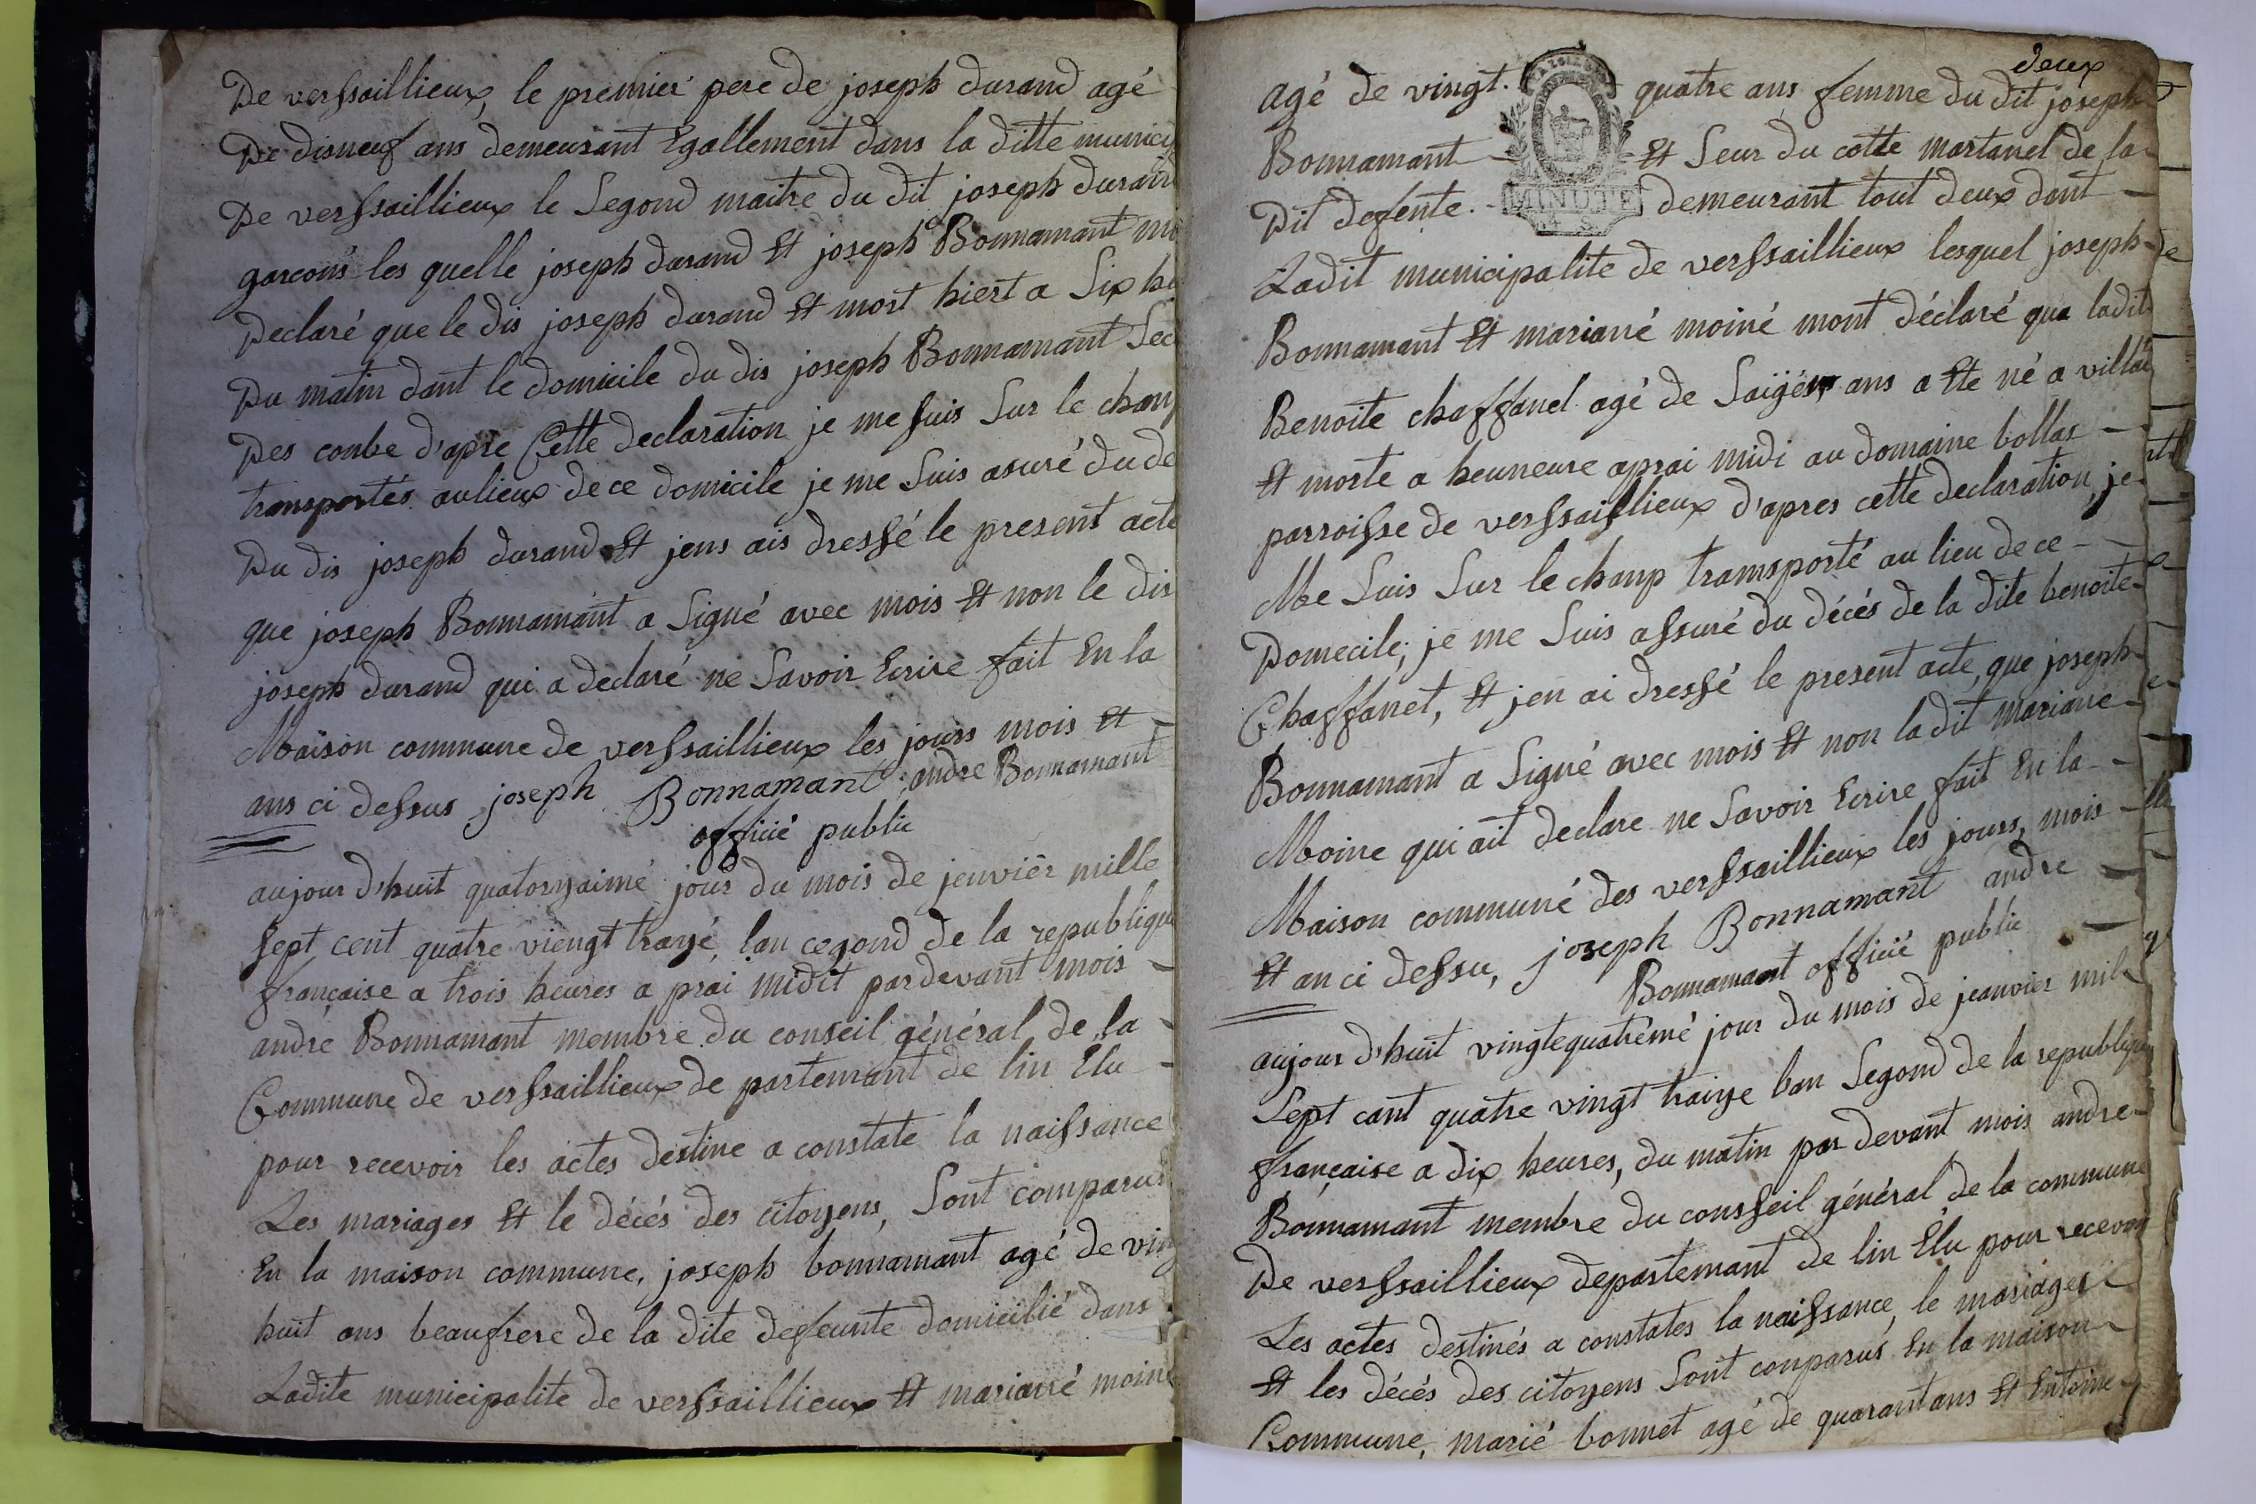 De verssaillieux, le premier pere de joseph durand agé
De disneuf ans demeurant Egallement dans la ditte munici
De verssaillieux le Segond maitre du dit joseph duran
garcons les quelle joseph durand Et joseph Bonnamant
Declaré que le dis joseph durand Et mort hiert a Six
Du matin dant le domicile du dis joseph Bonnamant
Des conbe d'apre Cette declaration je me suis Sur le
transportés aulieux de ce domicile je me Suis asuré du de
Du dis joseph durand Et jens ais dressé le present acte
que joseph Bonnamant a Signé avec mois Et non le dis
joseph durand qui a declaré ne Savoir Ecrire fait En la
Maison commune de verssaillieux les jours mois Et
ans ci dessus joseph Bonnamant andre Bonnamant
officié public
aujour d'huit quatorzaime jour du mois de jenvier mille
Sept cent quatre viengt trayé, lan cegond de la republique
française a trois heures a prai midit pardevant mois
andré Bonnamant membre du conseil général de la
Commune de verssaillieux de partemant de lin Elu
pour recevoir les actes destine a constate la naissance
Les mariages Et le décés des citoyens, Sont comparus
En la maison commune, joseph bonnamant agé de ving
huit ans beaufrere de la dite defeunte domicilié dans
Ladite municipalite de verssaillieux Et marianné moine
deux
agé de vingt quatre ans femme du dit joseph
Bonnamant Et Seur du cotte martanel de la
Dit defente. MINUTE demeurant tout deux dant
Ladit municipalite de verssaillieux lesquel joseph
Bonnamant Et marianné moiné mont déclaré que ladit
Benoite chaffanel agé de ans a Ete né a villar
Et morte a heuneure aprai midi au domaine bollas
parroisse de verssaillieux d'apres cette declaration, je
Me Suis Sur le champ transporté au lieu de ce
Domecile; je me Suis assuré du décés de la dite benoite
Chaffanet, Et jen ai dressé le present acte, que joseph
Bonnamant a Signé avec mois Et non ladit mariane
Moine qui ait declare ne Savoir Ecrire fait En la
Maison communé des verssaillieux les jours, mois
Et an ci dessu, joseph Bonnamant andre
Bonnamant officié public
aujour d'huit vingtequatrémé jour du mois de jeanvier mil
Sept cant quatre vingt traize lan Segond de la republique
française a dix heures, du matin par devant mois andre
Bonnamant membre du consseil général de la commune
De verssaillieux departemant de lin Elu pour recevoir
Les actes destinés a constates la naissance, le mariages
Et les décés des citoyens Sont conparus En la maison
Commune, marié bonnet agé de quarant ans Et Entoine